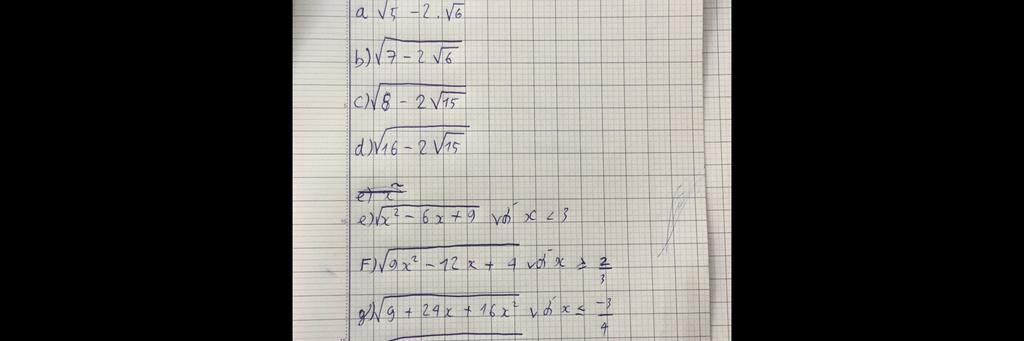 a √5 - 2 . √6
b) √(7 - 2√6)
c) √(8 - 2√15)
d) √(16 - 2√15)
e) x²
e) √(x² - 6x + 9) với x < 3
F) √(9x² - 12x + 4) với x ≥ 2/3
g) √(9 + 24x + 16x²) với x ≤ -3/4